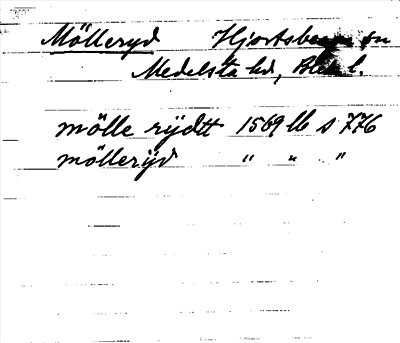 Mölleryd Hjortsberga sn
Medelsta hd, Blek. l.
mölle rÿdtt 1569 llb s 776
möllerÿd " " "